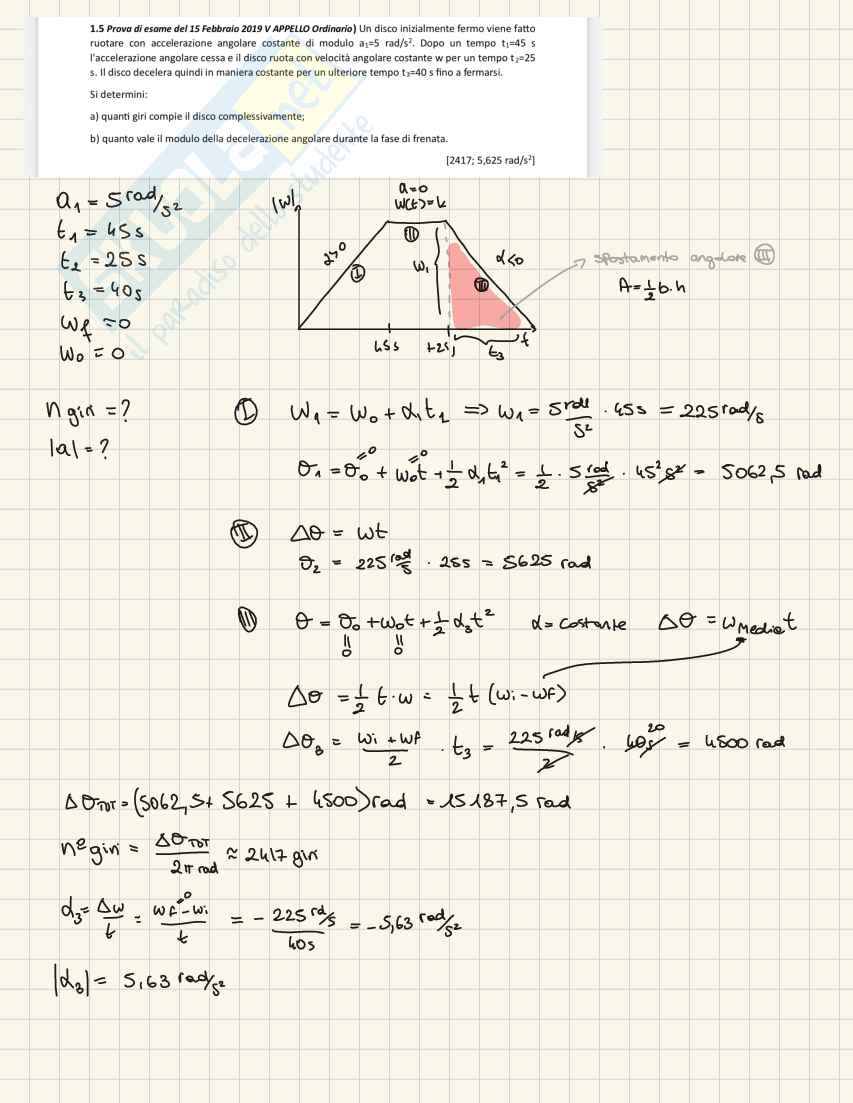 1.5 Prova di esame del 15 Febbraio 2019 V APPELLO Ordinario) Un disco inizialmente fermo viene fatto
ruotare con accelerazione angolare costante di modulo a₁=5 rad/s². Dopo un tempo t₁=45 s
l'accelerazione angolare cessa e il disco ruota con velocità angolare costante w per un tempo t₂=25
s. Il disco decelera quindi in maniera costante per un ulteriore tempo t₃=40 s fino a fermarsi.
Si determini:
a) quanti giri compie il disco complessivamente;
b) quanto vale il modulo della decelerazione angolare durante la fase di frenata.
[2417; 5,625 rad/s²]
il paradiso dello studente
a₁ = 5 rad/s²
t₁ = 45s
t₂ = 25s
t₃ = 40s
ωf = 0
ω₀ = 0
|ω|
a=0
ω(t)=k
α>0
I
II
ω₁
III
α<0
spostamento angolare III
A=½b·h
45s
+25s
t₃
t
n giri = ?
|a| = ?
I ω₁ = ω₀ + α₁t₁ => ω₁ = 5 rad/s² · 45s = 225 rad/s
θ₁ = θ₀ + ω₀t + ½ α₁t₁² = ½ · 5 rad/s² · 45² s² = 5062,5 rad
=0 =0
II Δθ = ωt
θ₂ = 225 rad/s · 25s = 5625 rad
III θ = θ₀ + ω₀t + ½ α₃t² α=costante Δθ = ωMedia t
0 0
Δθ = ½ t·ω = ½ t (ωi - ωf)
Δθ₃ = (ωi + ωf)/2 · t₃ = 225 rad/s / 2 · 40s 20 = 4500 rad
ΔθTOT = (5062,5 + 5625 + 4500) rad = 15187,5 rad
n° giri = ΔθTOT / 2π rad ≈ 2417 giri
α₃ = Δω/t = (ωf - ωi)/t = - 225 rd/s / 40s = -5,63 rad/s²
=0
|α₃| = 5,63 rad/s²